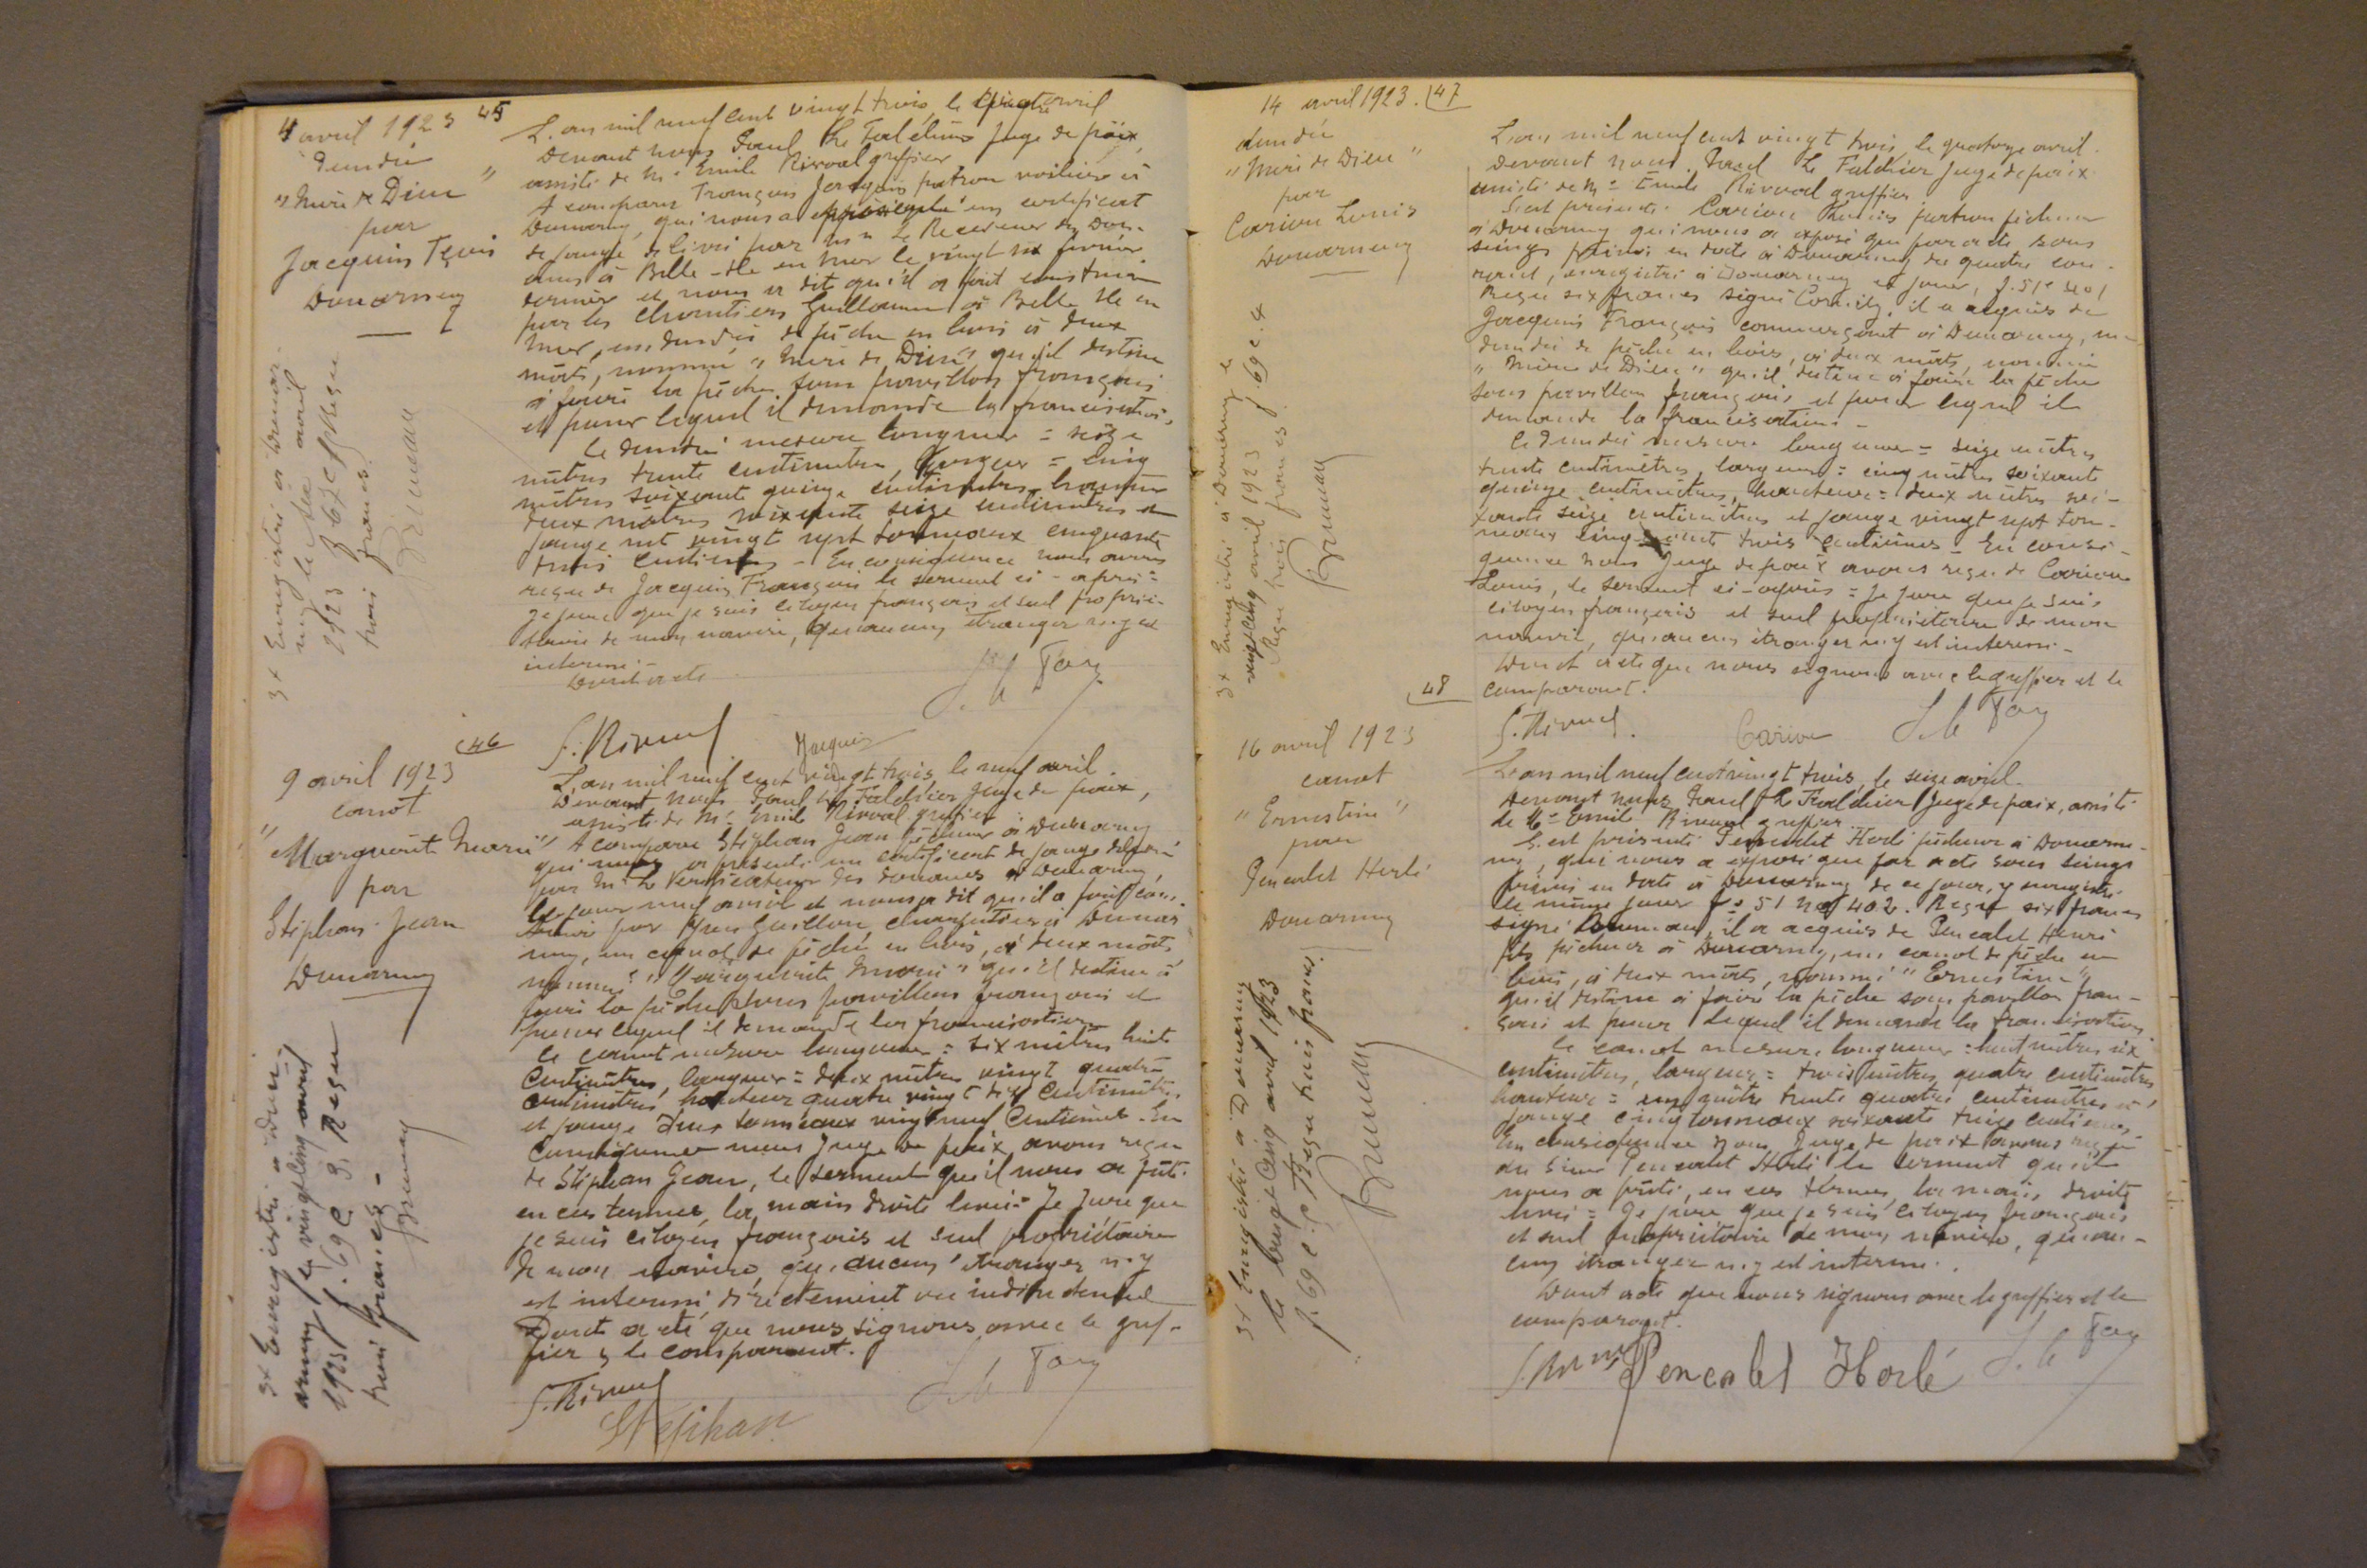 4 avril 1923 45
dundée
"Mère de Dieu"
par
Jacquin
Douarnenez
L'an mil neuf cent vingt trois, le quatre avril
Devant nous Paul Le Faldhier Juge de paix,
assisté de Me Emile Rivoal greffier
A comparu François Jacquin patron voilier à
Douarnenez, qui nous a présenté un certificat
de jauge délivré par Mr le Receveur des Dou-
anes à Belle-Ile en Mer le vingt six février
dernier et nous a dit qu'il a fait construire
par les chantiers Guillaume à Belle Ile en
Mer, un dundée de pêche en bois à deux
mâts, nommé "Mère de Dieu" qu'il destine
à faire la pêche sous pavillon français
et pour lequel il demande la francisation.
Le dundée mesure longueur = seize
mètres trente centimètres, largeur = cinq
mètres soixante quinze centimètres, hauteur
deux mètres soixante seize centimètres et
jauge net vingt sept tonneaux cinquante
trois centièmes - En conséquence nous avons
reçu de Jacquin François le serment ci-après =
Je jure que je suis citoyen français et seul proprié-
taire de mon navire, qu'aucun étranger n'y est
intéressé -
Dont acte
Enregistré à Douar-
nez le avril
1923 f 67 c Reçu
trois francs
Brumeau
S. le Fay
E. Rivoal
Jacquin
46
9 avril 1923
canot
"Marguerite Marie"
par
Stéphan Jean
Douarnenez
L'an mil neuf cent vingt trois, le neuf avril.
Devant nous Paul Le Faldhier Juge de paix,
assisté de Me Emile Rivoal greffier
A comparu Stéphan Jean pêcheur à Douarnenez
qui nous a présenté un certificat de jauge délivré
par Mr le Vérificateur des Douanes à Douarnenez,
le jour neuf avril et nous a dit qu'il a fait cons-
truire par Yves Guillou, charpentier à Douar
nez, un canot de pêche en bois, à deux mâts,
nommé "Marguerite Marie" qu'il destine à
faire la pêche sous pavillon français et
pour lequel il demande la francisation
Le canot mesure longueur = six mètres huit
centimètres, largeur = deux mètres vingt quatre
centimètres, hauteur quatre vingt dix centimètres
et jauge deux tonneaux vingt neuf centièmes. En
conséquence nous Juge de paix avons reçu
de Stéphan Jean, le serment qu'il nous a prêté
en ces termes, la main droite levée = Je jure que
je suis citoyen français et seul propriétaire
de mon navire, qu'aucun étranger n'y
est intéressé, directement ou indirectement
Dont acte que nous signons avec le gref-
fier & le comparant.
Enregistré à Douar-
nenez le vingt cinq avril
1923 f. 69 c 3. Reçu
trois francs -
Brumeau
E. Rivoal
S. le Fay
Stephan
14 avril 1923. 47
dundée
"Mère de Dieu"
par
Carion Louis
Douarnenez
L'an mil neuf cent vingt trois, le quatorze avril.
Devant nous Paul Le Faldhier Juge de paix
assisté de Me Emile Rivoal greffier
S'est présenté Carion Louis patron pêcheur
à Douarnenez qui nous a exposé que par acte sous
seings privés en date à Douarnenez du quatre cou-
rant, enregistré à Douarnenez ce jour, f. 51 no 401
Reçu six francs signé il a acquis de
Jacquin François commerçant à Douarnenez, un
dundée de pêche en bois, à deux mâts, nommé
"Mère de Dieu" qu'il destine à faire la pêche
sous pavillon français et pour lequel il
demande la francisation -
Le dundée mesure longueur = seize mètres
trente centimètres, largeur = cinq mètres soixante
quinze centimètres, hauteur = deux mètres soi-
xante seize centimètres et jauge vingt sept ton-
neaux cinquante trois centièmes - En consé-
quence nous Juge de paix avons reçu de Carion
Louis, le serment ci-après = Je jure que je suis
citoyen français et seul propriétaire de mon
navire, qu'aucun étranger n'y est intéressé -
Dont acte que nous signons avec le greffier et le
comparant.
Enregistré à Douarnenez le
vingt cinq avril 1923 f. 69 c. 4
Reçu trois francs.
Brumeau
E. Rivoal.
Carion
S. le Fay
48
16 avril 1923
canot
"Ernestine"
pour
Pencalet Herlé
Douarnenez
L'an mil neuf cent vingt trois, le seize avril.
Devant nous Paul Le Faldhier Juge de paix, assisté
de Me Emile Rivoal greffier
S'est présenté Pencalet Herlé pêcheur à Douarne-
nez, qui nous a exposé que par acte sous seings
privés en date à Douarnenez de ce jour, y enregistré
le même jour fo 51 no 402. Reçu six francs
signé Brumeau, il a acquis de Pencalet Henri
fils pêcheur à Douarnenez, un canot de pêche en
bois, à deux mâts, nommé "Ernestine"
qu'il destine à faire la pêche sous pavillon fran-
çais et pour lequel il demande la francisation
Le canot mesure, longueur = huit mètres six
centimètres, largeur = trois mètres quatre centimètres
hauteur = un mètre trente quatre centimètres et
jauge cinq tonneaux soixante treize centièmes.
En conséquence nous Juge de paix avons reçu
du sieur Pencalet Herlé le serment qu'il
nous a prêté, en ces termes, la main droite
levée = Je jure que je suis citoyen français
et seul propriétaire de mon navire, qu'au-
cun étranger n'y est intéressé.
Dont acte que nous signons avec le greffier et le
comparant.
Enregistré à Douarnenez
le vingt cinq avril 1923
f. 69 c. 5 Reçu trois francs
Brumeau
Pencalet Herlé
S. le Fay